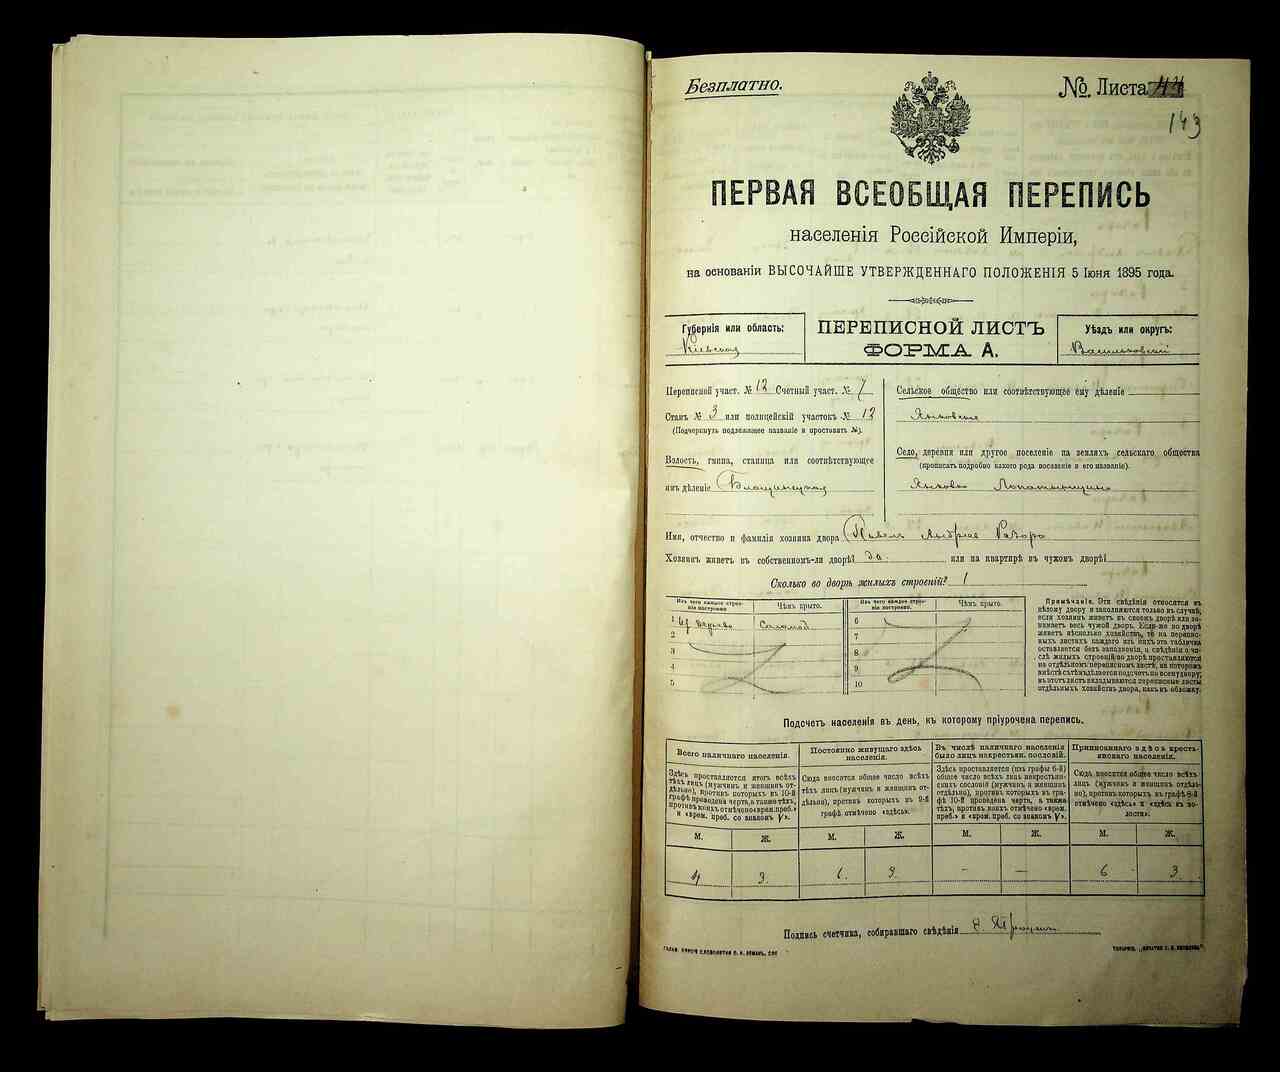 Безплатно.
№ Листа 44
143
ПЕРВАЯ ВСЕОБЩАЯ ПЕРЕПИСЬ
населенія Россійской Имперіи,
на основаніи ВЫСОЧАЙШЕ УТВЕРЖДЕННАГО ПОЛОЖЕНІЯ 5 Іюня 1895 года.
Губернія или область:
Кіевская
ПЕРЕПИСНОЙ ЛИСТЪ
ФОРМА А.
Уѣздъ или округъ:
Васильковскій
Переписной участ. № 12 Счетный участ. № 7
Станъ № 3 или полицейскій участокъ № 12
(Подчеркнуть подлежащее названіе и проставить №).
Волость, гмина, станица или соотвѣтствующее
имъ дѣленіе
Сельское общество или соотвѣтствующее ему дѣленіе
Село, деревня или другое поселеніе на земляхъ сельскаго общества
(прописать подробно какого рода поселеніе и его названіе).
Имя, отчество и фамилія хозяина двора Павелъ
Хозяинъ живетъ въ собственномъ-ли дворѣ? да. или на квартирѣ въ чужомъ дворѣ?
Сколько во дворѣ жилыхъ строеній? 1
Изъ чего каждое строе-
ніе построено.
Чѣмъ крыто.
Изъ чего каждое строе-
ніе построено.
Чѣмъ крыто.
1 Изъ дерева Соломой
2
3
4
5
6
7
8
9
10
Примѣчаніе. Эти свѣдѣнія относятся къ
цѣлому двору и заполняются только въ случаѣ,
если хозяинъ живетъ въ своемъ дворѣ или за-
нимаетъ весь чужой дворъ. Если-же во дворѣ
живетъ нѣсколько хозяйствъ, то на перепис-
ныхъ листахъ каждаго изъ нихъ эта табличка
оставляется безъ заполненія, а свѣдѣнія о чи-
слѣ жилыхъ строеній во дворѣ проставляются
на отдѣльномъ переписномъ листѣ, на которомъ
вмѣстѣ съ тѣмъ дѣлается подсчетъ по всему двору;
въ этотъ листъ вкладываются переписные листы
отдѣльныхъ хозяйствъ двора, какъ въ обложку.
Подсчетъ населенія въ день, къ которому пріурочена перепись.
Всего наличнаго населенія.
Постоянно живущаго здѣсь
населенія.
Въ числѣ наличнаго населенія
было лицъ некрестьян. сословій:
Приписаннаго здѣсь кресть-
янскаго населенія.
Здѣсь проставляется итогъ всѣхъ
тѣхъ лицъ (мужчинъ и женщинъ от-
дѣльно), противъ которыхъ въ 10-й
графѣ проведена черта, а также тѣхъ,
противъ коихъ отмѣчено «врем. преб.»
и «врем. преб. со знакомъ V».
Сюда вносится общее число всѣхъ
тѣхъ лицъ (мужчинъ и женщинъ от-
дѣльно), противъ которыхъ въ 9-й
графѣ отмѣчено «здѣсь».
Здѣсь проставляется (изъ графы 6-й)
общее число всѣхъ лицъ некрестьян-
скихъ сословій (мужчинъ и женщинъ
отдѣльно), противъ которыхъ въ гра-
фѣ 10-й проведена черта, а также
тѣхъ, противъ коихъ отмѣчено «врем.
преб.» и «врем. преб. со знакомъ V».
Сюда вносится общее число всѣхъ
лицъ (мужчинъ и женщинъ отдѣль-
но), противъ которыхъ въ графѣ 8-й
отмѣчено «здѣсь» и «здѣсь въ во-
лости».
М. Ж. М. Ж. М. Ж. М. Ж.
4 3. 6. 3. - — 6 3.
Подпись счетчика, собиравшаго свѣдѣнія